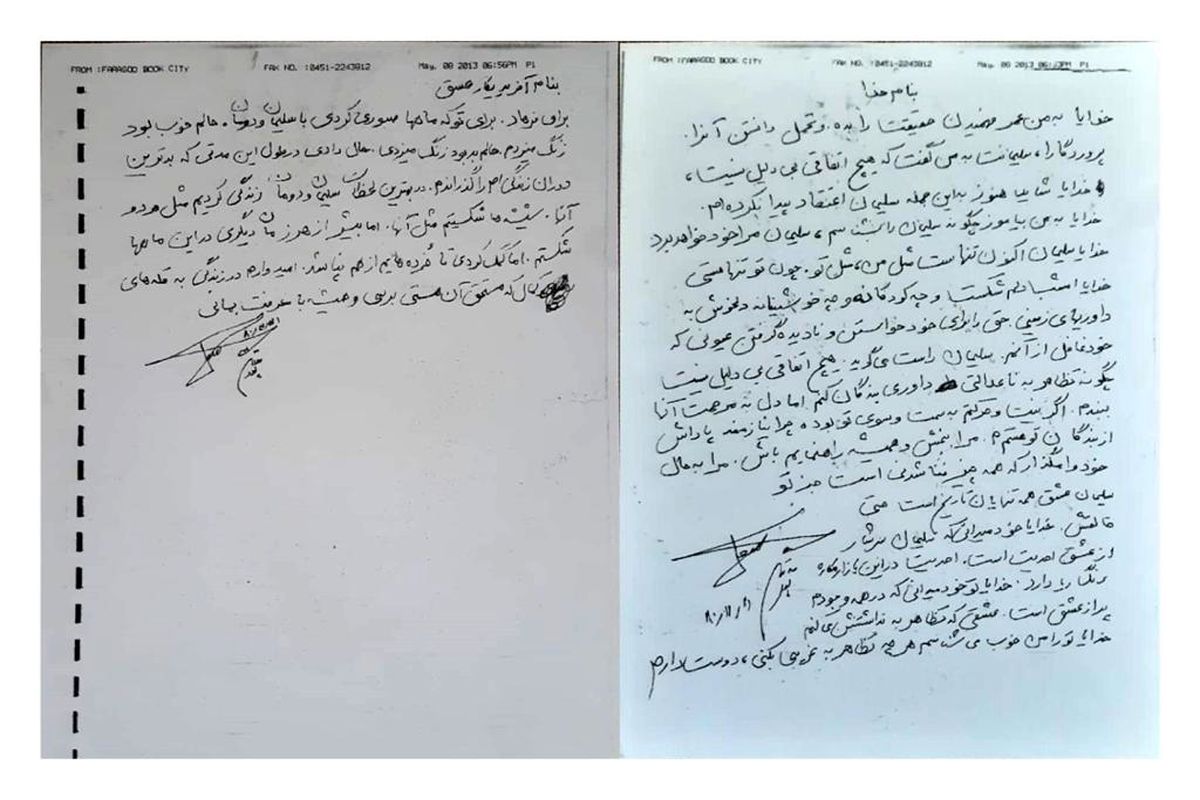 FROM :FARAGOO BOOK CITY FAX NO. :0451-2243812 May. 08 2013 06:56PM P1
بنام آفریدگار عشق
برای فرهاد. برای تو که ماهها صبوری کردی با سلیمان و دومان. حالم خوب بود
زنگ میزدم. حالم بد بود زنگ میزدی. حال دادی در طول این مدتی که بدترین
دوران زندگی ام را گذراندم. در بهترین لحظات سلیمان و دومان زندگی کردیم مثل هر دو
آنها. شیشه ها شکستیم مثل آنها. اما بیشتر از هر زمان دیگری در این ماهها
شکستم. اما کمک کردی تا خُرده هایم از هم نپاشد. امیدوارم در زندگی به قله های
کمال که مستحق آن هستی برسی و همیشه با معرفت بمانی
FROM :FARAGOO BOOK CITY FAX NO. :0451-2243812 May. 08 2013 P1
بنام خدا
خدایا به من عمر فهمیدن حقیقت را بده. و تحمل دانستن آنرا.
پروردگارا، سلیمانت به من گفت که هیچ اتفاقی بی دلیل نیست،
خدایا شاید هنوز به این جمله سلیمان اعتقاد پیدا نکرده ام.
خدایا به من بیاموز چگونه سلیمان را بشناسم، سلیمان مرا خود خواهد برد
خدایا سلیمان اکنون تنهاست مثل من، مثل تو. چون تو تنها هستی
خدایا اشتباه دلم شکست و چه کودکانه و چه خوشبینانه دلخوش به
داوریهای زمینی. حق را برای خود خواستن و نادیده گرفتن عیوبی که
خود غافل از آنم. سلیمان راست می گوید. هیچ اتفاقی بی دلیل نیست
چگونه تظاهر به ناعدالتی داوری بندگان کنم اما دل به مرحمت آنها
ببندم. اگر نیت و حرکتم به سمت و سوی تو بوده چرا نیازمند پاداش
از بندگان تو هستم. مرا ببخش و همیشه راهنمایم باش. مرا به حال
خود وامگذار که همه چیز فنا شدنی است جز تو
سلیمان عشق همه تنهایان تاریخ است حتی
خالقش. خدایا خود میدانی که سلیمان سرشار
از عشق احدیت است. احدیت در این بازار مکاره
رنگ ریا دارد. خدایا تو خود میدانی که در همه وجودم
پر از عشق است. عشقی که تظاهر به نداشتنش می کنم
خدایا تو را من خوب می شناسم هر چه تظاهر به بکنی، دوستت دارم